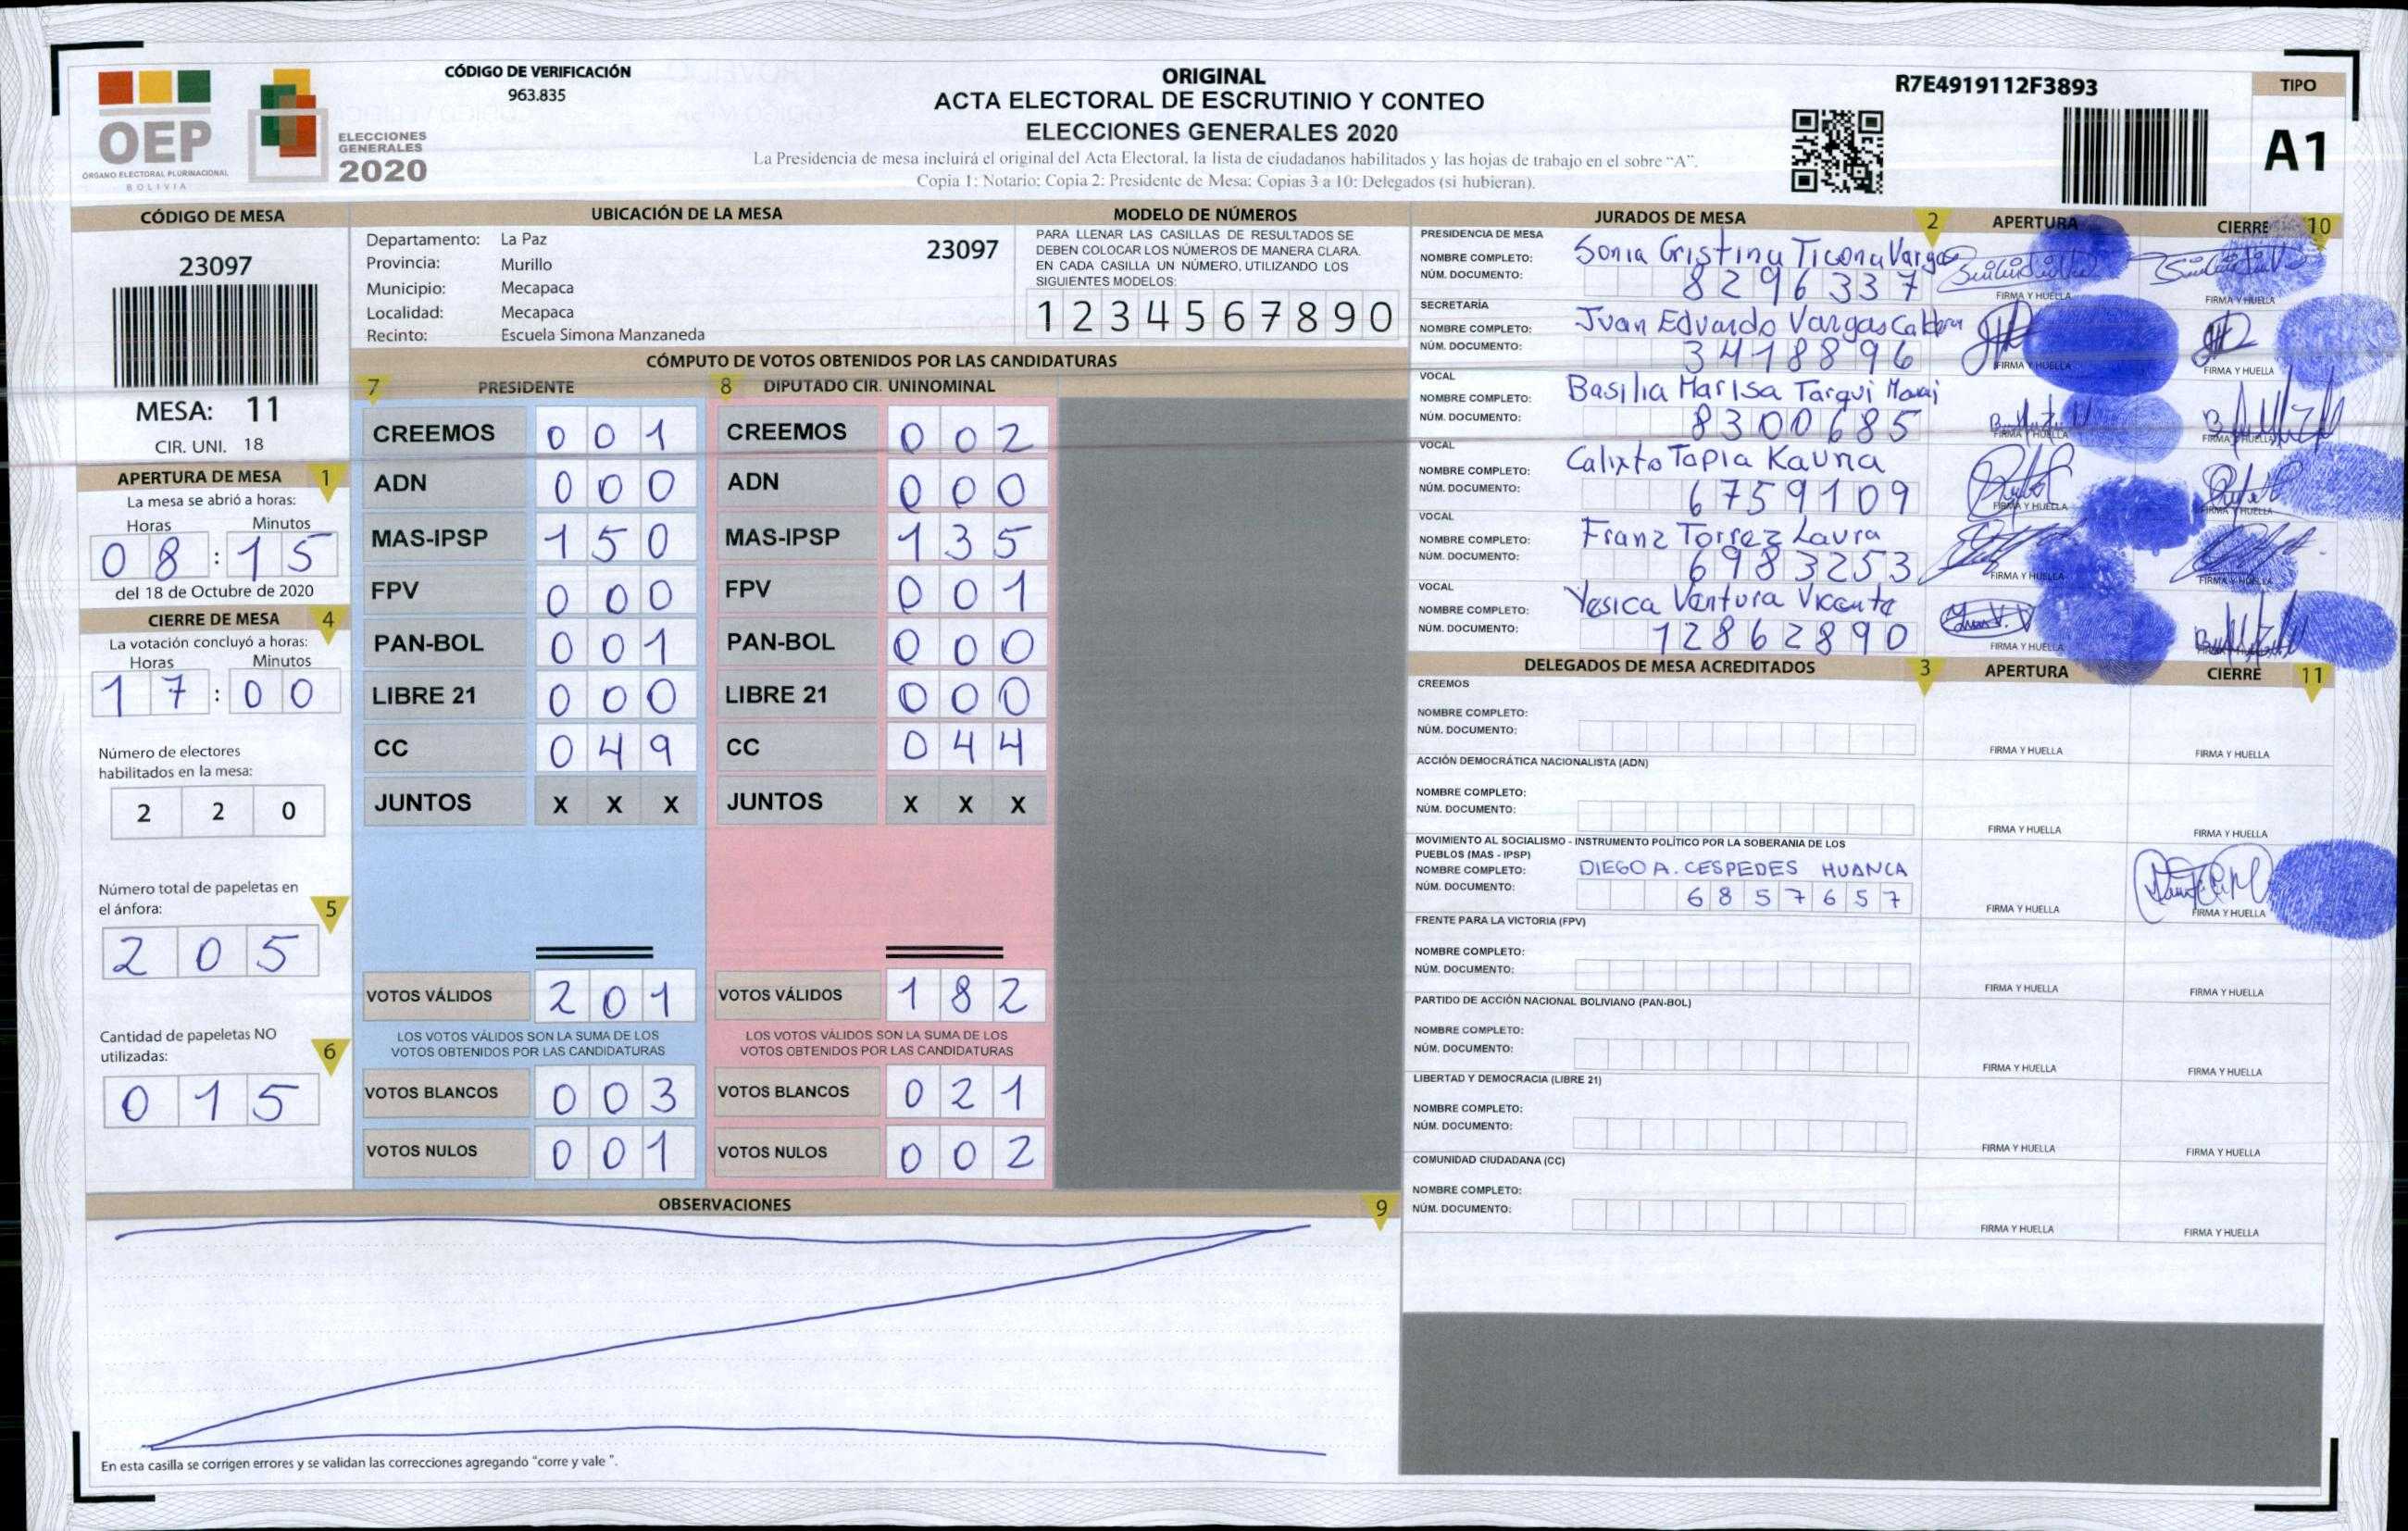 OEP
ÓRGANO ELECTORAL PLURINACIONAL
BOLIVIA
ELECCIONES
GENERALES
2020
CÓDIGO DE VERIFICACIÓN
963.835
ORIGINAL
ACTA ELECTORAL DE ESCRUTINIO Y CONTEO
ELECCIONES GENERALES 2020
La Presidencia de mesa incluirá el original del Acta Electoral, la lista de ciudadanos habilitados y las hojas de trabajo en el sobre “A”.
Copia 1: Notario; Copia 2: Presidente de Mesa; Copias 3 a 10: Delegados (si hubieran).
R7E4919112F3893
TIPO
A1
CÓDIGO DE MESA
23097
MESA: 11
CIR. UNI. 18
APERTURA DE MESA 1
La mesa se abrió a horas:
Horas Minutos
08:15
del 18 de Octubre de 2020
CIERRE DE MESA 4
La votación concluyó a horas:
Horas Minutos
17:00
Número de electores
habilitados en la mesa:
2 2 0
Número total de papeletas en
el ánfora: 5
2 0 5
Cantidad de papeletas NO
utilizadas: 6
0 1 5
UBICACIÓN DE LA MESA
Departamento: La Paz 23097
Provincia: Murillo
Municipio: Mecapaca
Localidad: Mecapaca
Recinto: Escuela Simona Manzaneda
MODELO DE NÚMEROS
PARA LLENAR LAS CASILLAS DE RESULTADOS SE
DEBEN COLOCAR LOS NÚMEROS DE MANERA CLARA.
EN CADA CASILLA UN NÚMERO, UTILIZANDO LOS
SIGUIENTES MODELOS:
1 2 3 4 5 6 7 8 9 0
CÓMPUTO DE VOTOS OBTENIDOS POR LAS CANDIDATURAS
7 PRESIDENTE 8 DIPUTADO CIR. UNINOMINAL
CREEMOS 0 0 1 CREEMOS 0 0 2
ADN 0 0 0 ADN 0 0 0
MAS-IPSP 1 5 0 MAS-IPSP 1 3 5
FPV 0 0 0 FPV 0 0 1
PAN-BOL 0 0 1 PAN-BOL 0 0 0
LIBRE 21 0 0 0 LIBRE 21 0 0 0
CC 0 4 9 CC 0 4 4
JUNTOS X X X JUNTOS X X X
VOTOS VÁLIDOS 2 0 1 VOTOS VÁLIDOS 1 8 2
LOS VOTOS VÁLIDOS SON LA SUMA DE LOS LOS VOTOS VÁLIDOS SON LA SUMA DE LOS
VOTOS OBTENIDOS POR LAS CANDIDATURAS VOTOS OBTENIDOS POR LAS CANDIDATURAS
VOTOS BLANCOS 0 0 3 VOTOS BLANCOS 0 2 1
VOTOS NULOS 0 0 1 VOTOS NULOS 0 0 2
OBSERVACIONES 9
En esta casilla se corrigen errores y se validan las correcciones agregando “corre y vale ”.
JURADOS DE MESA 2 APERTURA CIERRE 10
PRESIDENCIA DE MESA
NOMBRE COMPLETO: Sonia Cristina Ticona Vargas
NÚM. DOCUMENTO: 8296337
FIRMA Y HUELLA FIRMA Y HUELLA
SECRETARÍA
NOMBRE COMPLETO: Juan Eduardo Vargas
NÚM. DOCUMENTO: 3418896
FIRMA Y HUELLA FIRMA Y HUELLA
VOCAL
NOMBRE COMPLETO: Basilia Marisa Tarqui
NÚM. DOCUMENTO: 8300685
FIRMA Y HUELLA FIRMA Y HUELLA
VOCAL
NOMBRE COMPLETO: Calixto Tapia Kauna
NÚM. DOCUMENTO: 6759109
FIRMA Y HUELLA FIRMA Y HUELLA
VOCAL
NOMBRE COMPLETO: Franz Torrez Laura
NÚM. DOCUMENTO: 6983253
FIRMA Y HUELLA FIRMA Y HUELLA
VOCAL
NOMBRE COMPLETO: Yesica Ventura Vicente
NÚM. DOCUMENTO: 12862890
FIRMA Y HUELLA FIRMA Y HUELLA
DELEGADOS DE MESA ACREDITADOS 3 APERTURA CIERRE 11
CREEMOS
NOMBRE COMPLETO:
NÚM. DOCUMENTO:
FIRMA Y HUELLA FIRMA Y HUELLA
ACCIÓN DEMOCRÁTICA NACIONALISTA (ADN)
NOMBRE COMPLETO:
NÚM. DOCUMENTO:
FIRMA Y HUELLA FIRMA Y HUELLA
MOVIMIENTO AL SOCIALISMO - INSTRUMENTO POLÍTICO POR LA SOBERANIA DE LOS
PUEBLOS (MAS - IPSP)
NOMBRE COMPLETO: DIEGO A. CESPEDES HUANCA
NÚM. DOCUMENTO: 6857657
FIRMA Y HUELLA FIRMA Y HUELLA
FRENTE PARA LA VICTORIA (FPV)
NOMBRE COMPLETO:
NÚM. DOCUMENTO:
FIRMA Y HUELLA FIRMA Y HUELLA
PARTIDO DE ACCIÓN NACIONAL BOLIVIANO (PAN-BOL)
NOMBRE COMPLETO:
NÚM. DOCUMENTO:
FIRMA Y HUELLA FIRMA Y HUELLA
LIBERTAD Y DEMOCRACIA (LIBRE 21)
NOMBRE COMPLETO:
NÚM. DOCUMENTO:
FIRMA Y HUELLA FIRMA Y HUELLA
COMUNIDAD CIUDADANA (CC)
NOMBRE COMPLETO:
NÚM. DOCUMENTO:
FIRMA Y HUELLA FIRMA Y HUELLA